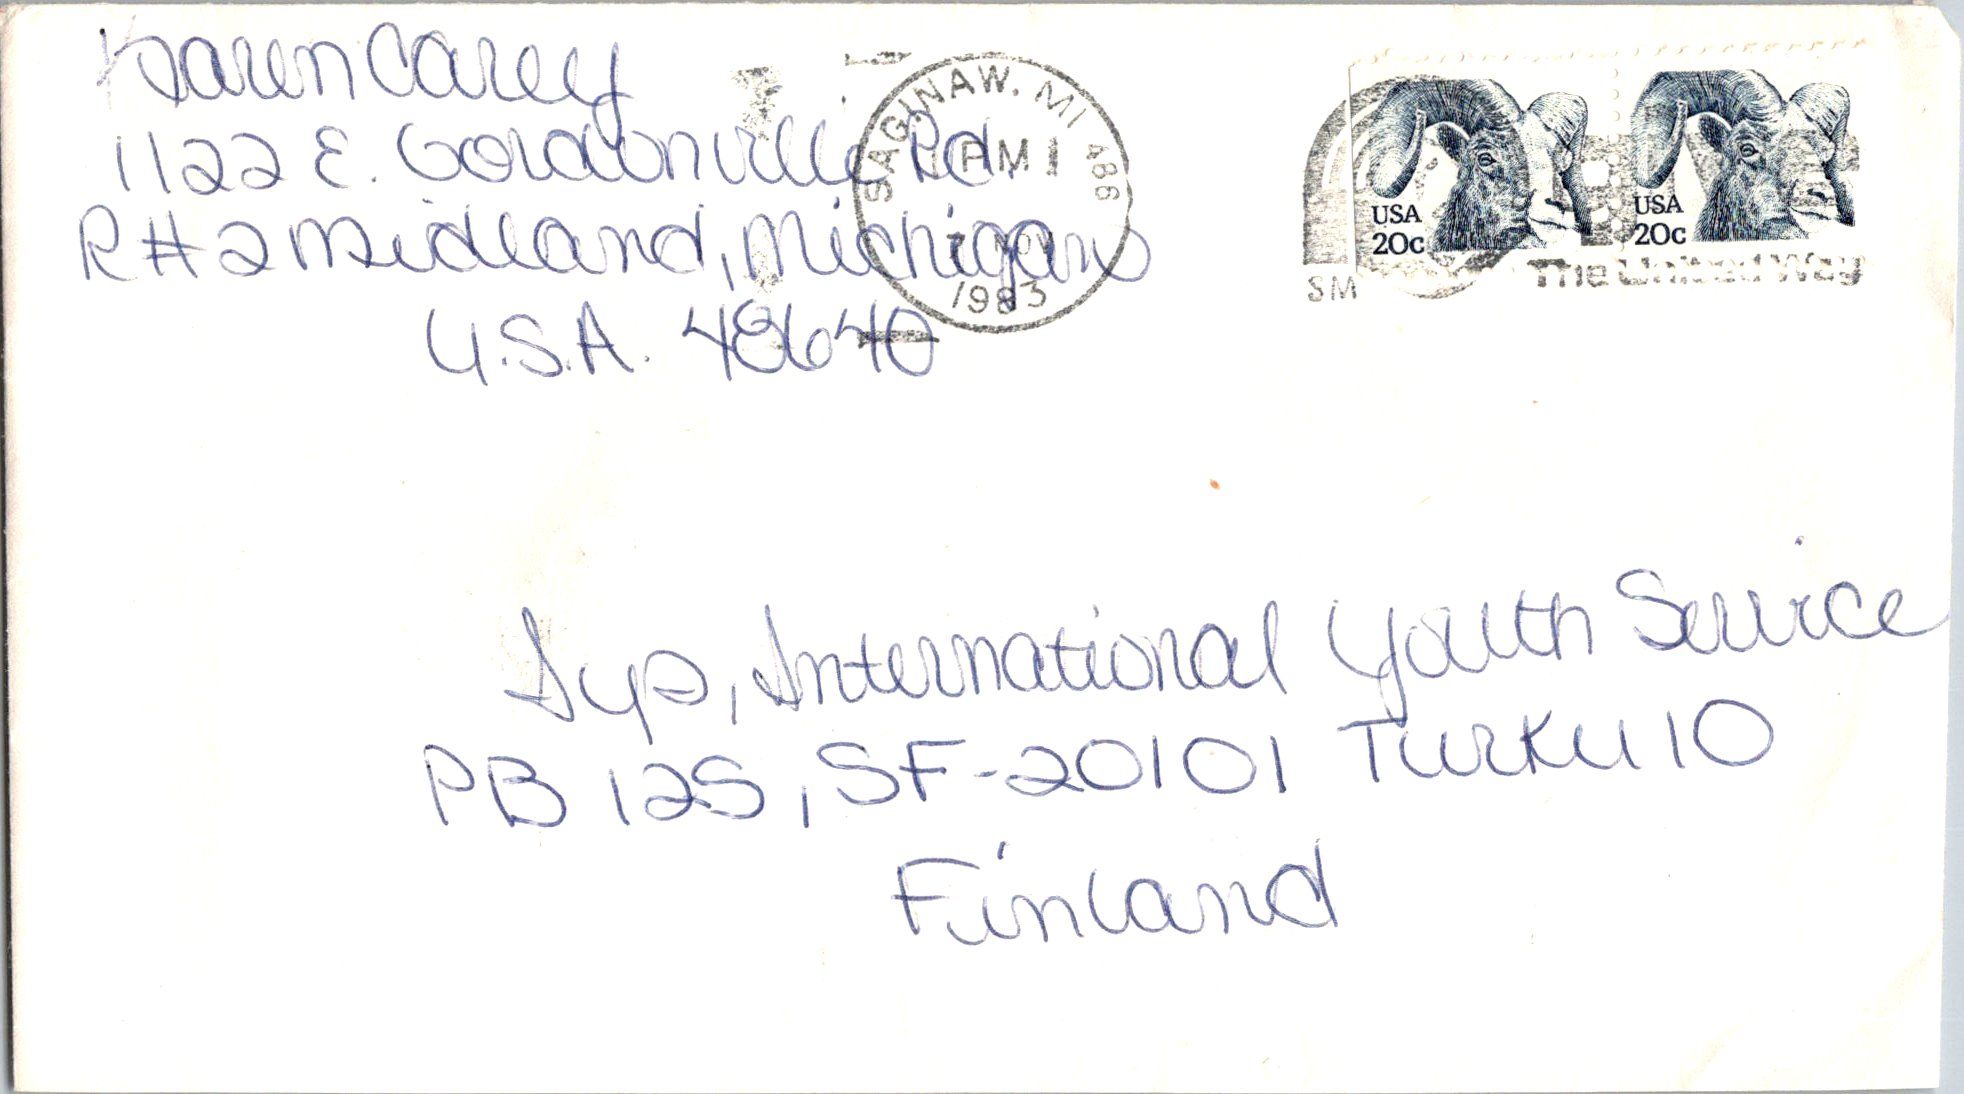 Karen Carey
1122 E. Gordonville Rd
R#2 Midland, Michigan
U.S.A. 48640
SAGINAW, MI 486
PM 1
NOV
1983
USA
20c
USA
20c
SM
The United Way
Iys, International Youth Service
PB 125, SF-20101 Turku 10
Finland